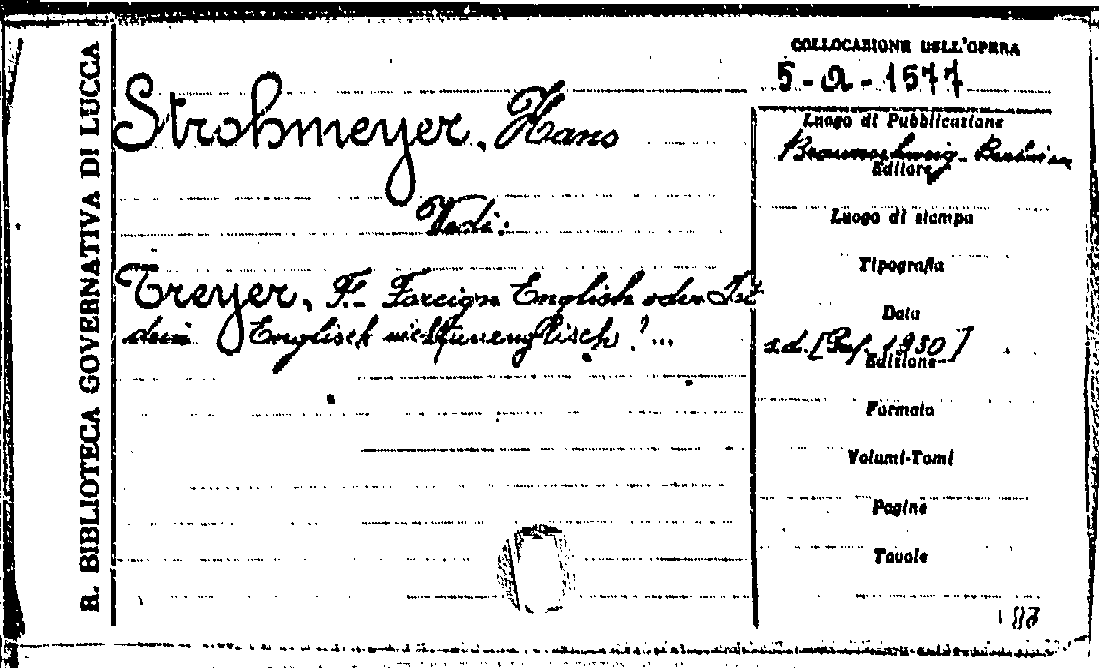 R. BIBLIOTECA GOVERNATIVA DI LUCCA
Strohmeyer, Hans
Vedi:
Treyer, F. Foreign English oder Ist
dein Englisch nicht unenglisch? ...
COLLOCAZIONE DELL'OPERA
5-a-1577
Luogo di Pubblicazione
Braunschweig - Berlin
Editore
Luogo di stampa
Tipografia
Data
s.d. [Pref. 1930]
Edizione
Formato
Volumi-Tomi
Pagine
Tavole